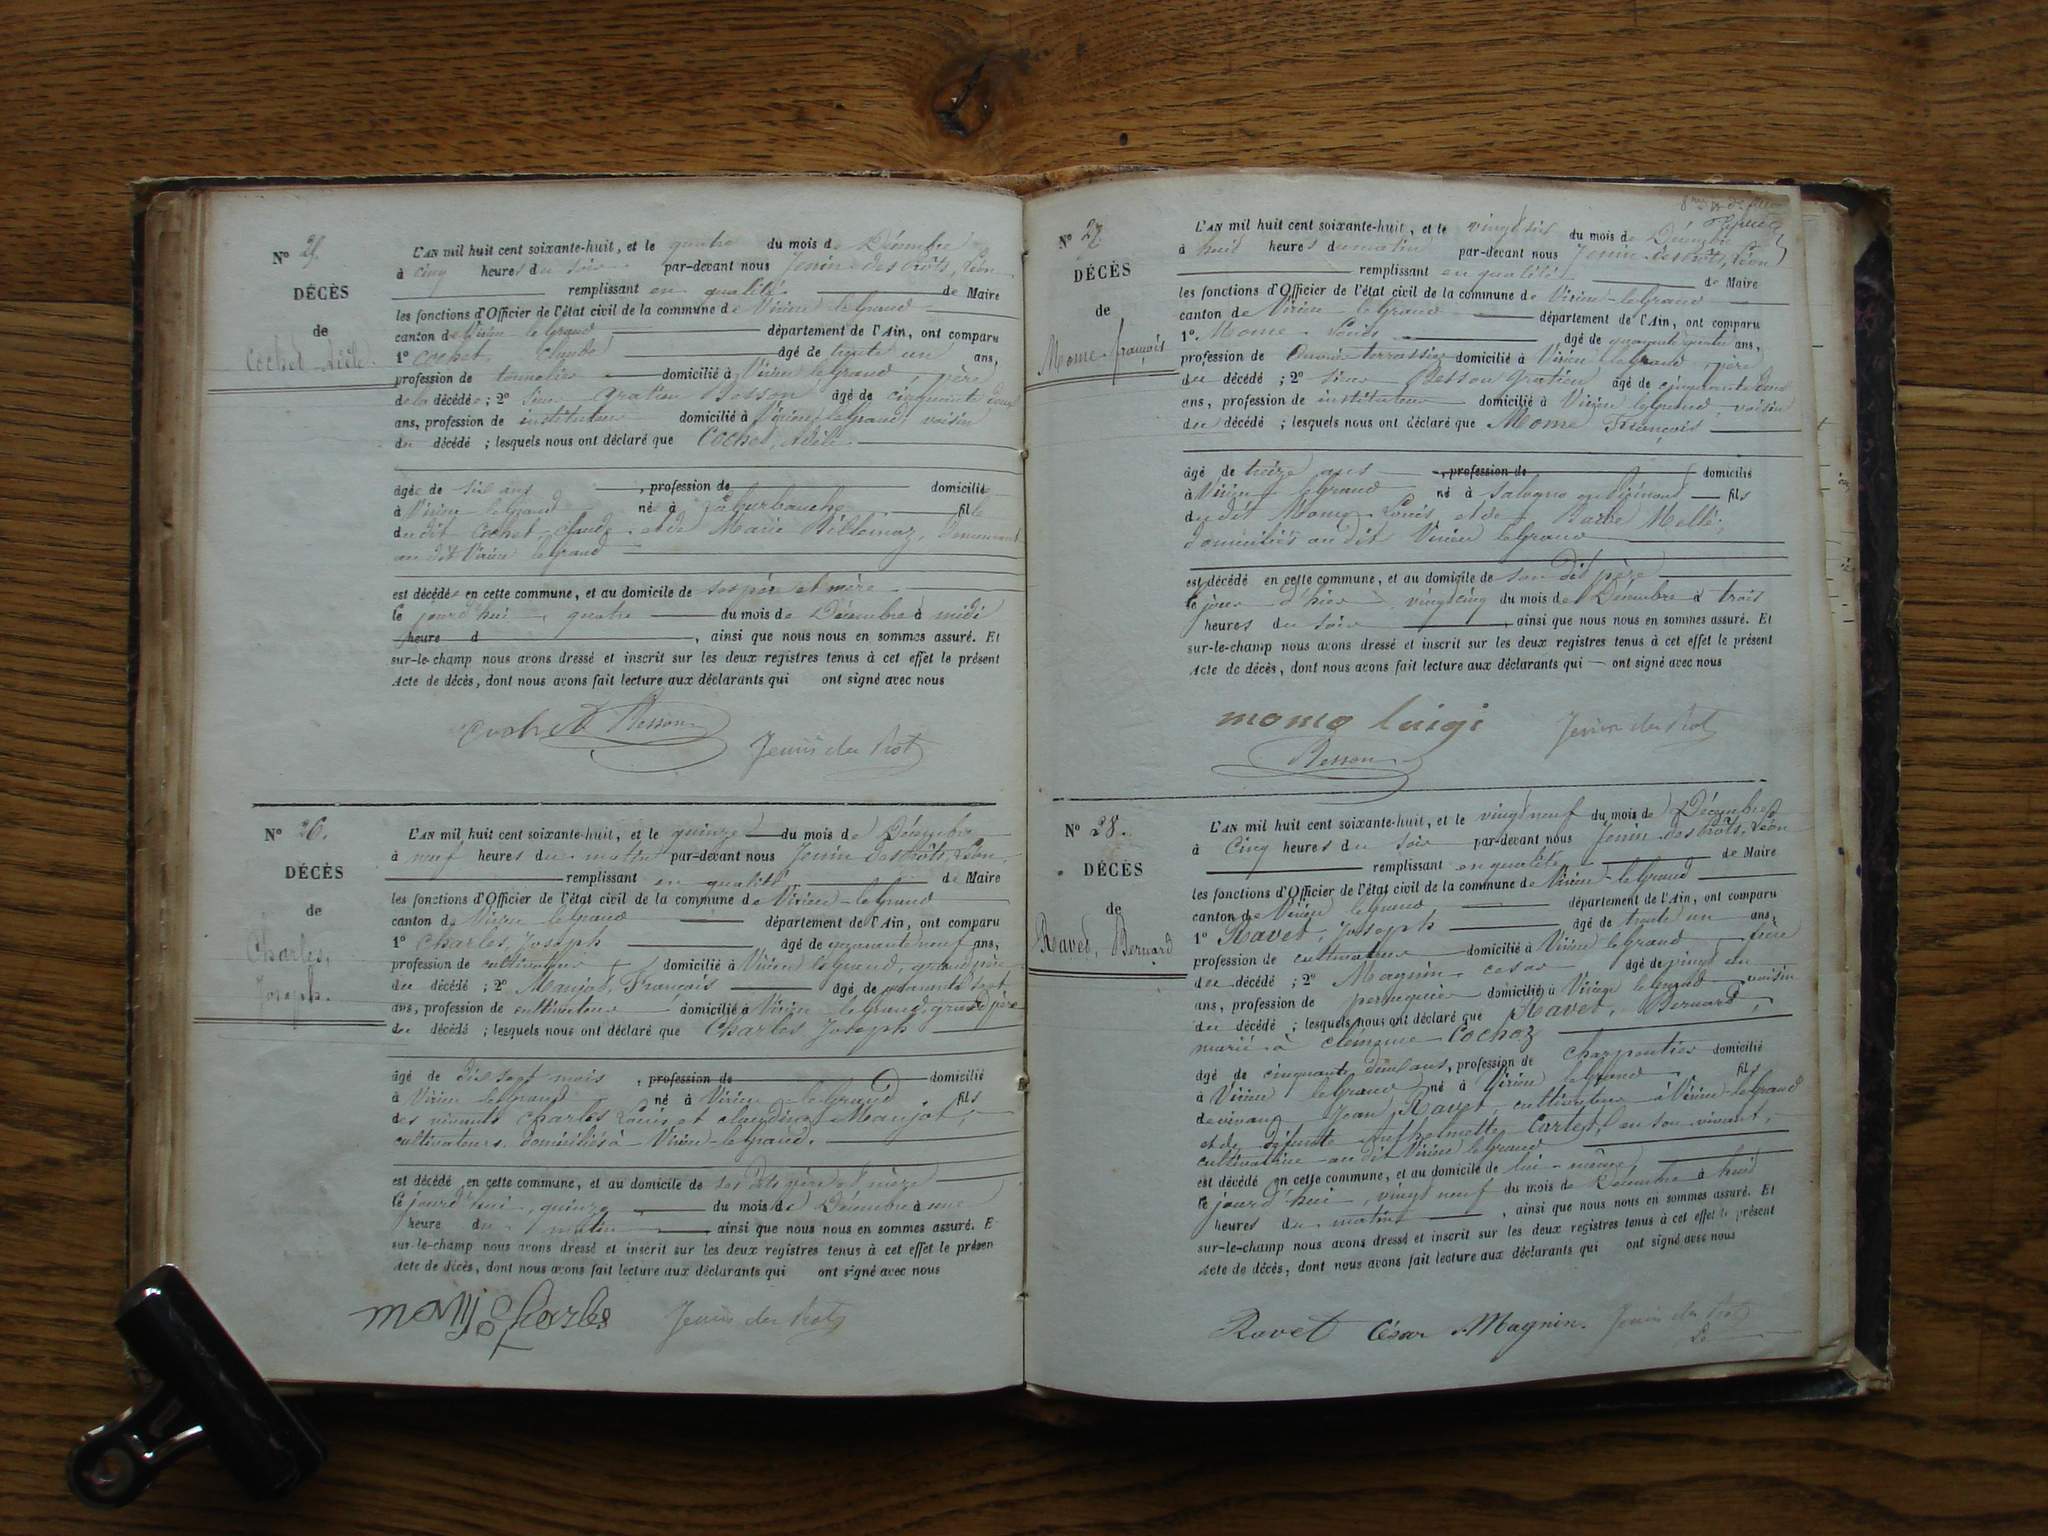 N° 25.
DÉCÈS
de
Cochet Adèle.
L'AN mil huit cent soixante-huit, et le quatre du mois de Décembre
à cinq heures du soir par-devant nous Jenin des Prôts, Léon
remplissant en qualité de Maire
les fonctions d'Officier de l'état civil de la commune de Virieu le Grand
canton de Virieu le Grand département de l'Ain, ont comparu
1° Cochet, Claude âgé de trente un ans,
profession de domicilié à Virieu le Grand, père
de la décédée ; 2° sieur Gratien Besson âgé de cinquante deux
ans, profession de instituteur domicilié à Virieu le Grand, voisin
du décédé ; lesquels nous ont déclaré que Cochet, Adèle
âgée de six ans , profession de domicilié
à Virieu le Grand né à fille
du dit Cochet, Claude et de Marie demeurant
au dit Virieu le Grand
est décédée en cette commune, et au domicile de ses père et mère
le jourd'hui quatre du mois de Décembre à midi
heure d , ainsi que nous nous en sommes assuré. Et
sur-le-champ nous avons dressé et inscrit sur les deux registres tenus à cet effet le présent
Acte de décès, dont nous avons fait lecture aux déclarants qui ont signé avec nous
Cochet Besson
Jenin des Prôts
N° 26.
DÉCÈS
de
Charles,
Joseph.
L'AN mil huit cent soixante-huit, et le quinze du mois de Décembre
à neuf heures du matin par-devant nous Jenin des Prôts, Léon,
remplissant en qualité de Maire
les fonctions d'Officier de l'état civil de la commune de Virieu-le Grand
canton de Virieu le Grand département de l'Ain, ont comparu
1° Charles, Joseph âgé de neuf ans,
profession de cultivateur domicilié à Virieu le Grand, grand père
du décédé ; 2° Maujot, François âgé de sept
ans, profession de cultivateur domicilié à Virieu le Grand, grand père
du décédé ; lesquels nous ont déclaré que Charles Joseph
âgé de dix sept mois , profession de domicilié
à Virieu le Grand né à Virieu le Grand fils
des vivants Charles Louis et Claudine Maujot,
cultivateurs, domiciliés à Virieu-le Grand.
est décédé en cette commune, et au domicile de ses dits père et mère
le jourd'hui, quinze du mois de Décembre à une
heure du matin ainsi que nous nous en sommes assuré. E
sur-le-champ nous avons dressé et inscrit sur les deux registres tenus à cet effet le présen
Acte de décès, dont nous avons fait lecture aux déclarants qui ont signé avec nous
Charles Jenin des Prôts
N° 27
DÉCÈS
de
Mome françois
L'AN mil huit cent soixante-huit, et le vingt six du mois de Décembre
à huit heures du matin par-devant nous Jenin des Prôts, Léon
remplissant en qualité de Maire
les fonctions d'Officier de l'état civil de la commune de Virieu-le Grand
canton de Virieu le Grand département de l'Ain, ont comparu
1° Mome Louis âgé de quarante ans,
profession de terrassier domicilié à Virieu le Grand, père
du décédé ; 2° sieur Besson Gratien âgé de cinquante deux
ans, profession de instituteur domicilié à Virieu le Grand, voisin
du décédé ; lesquels nous ont déclaré que Mome François
âgé de treize ans , profession de domicilié
à Virieu le Grand né à en Piémont fils
du dit Mome Louis et de Barbe
domiciliés au dit Virieu le Grand
est décédé en cette commune, et au domicile de son dit père
le jour d'hier vingt cinq du mois de Décembre à trois
heures du soir , ainsi que nous nous en sommes assuré. Et
sur-le-champ nous avons dressé et inscrit sur les deux registres tenus à cet effet le présent
Acte de décès, dont nous avons fait lecture aux déclarants qui ont signé avec nous
momo luigi Jenin des Prôts
Besson
N° 28.
DÉCÈS
de
Ravet, Bernard
L'AN mil huit cent soixante-huit, et le vingt neuf du mois de Décembre
à cinq heures du soir par-devant nous Jenin des Prôts, Léon
remplissant en qualité de Maire
les fonctions d'Officier de l'état civil de la commune de Virieu-le Grand
canton de Virieu le Grand département de l'Ain, ont comparu
1° Ravet, Joseph âgé de trente un ans,
profession de cultivateur domicilié à Virieu le Grand
du décédé ; 2° Magnin cesar âgé de vingt un
ans, profession de perruquier domicilié à Virieu le Grand voisin
du décédé ; lesquels nous ont déclaré que Ravet, Bernard,
marié à Cochoz
âgé de cinquante deux ans, profession de charpentier domicilié
à Virieu le Grand né à Virieu le Grand fils
de vivant Jean Ravet, cultivateur à Virieu-le Grand
et de défunte en son vivant,
cultivatrice au dit Virieu le Grand
est décédé en cette commune, et au domicile de lui-même
le jourd'hui, vingt neuf du mois de Décembre à huit
heures du matin , ainsi que nous nous en sommes assuré. Et
sur-le-champ nous avons dressé et inscrit sur les deux registres tenus à cet effet le présent
Acte de décès, dont nous avons fait lecture aux déclarants qui ont signé avec nous
Ravet César Magnin. Jenin des Prôts